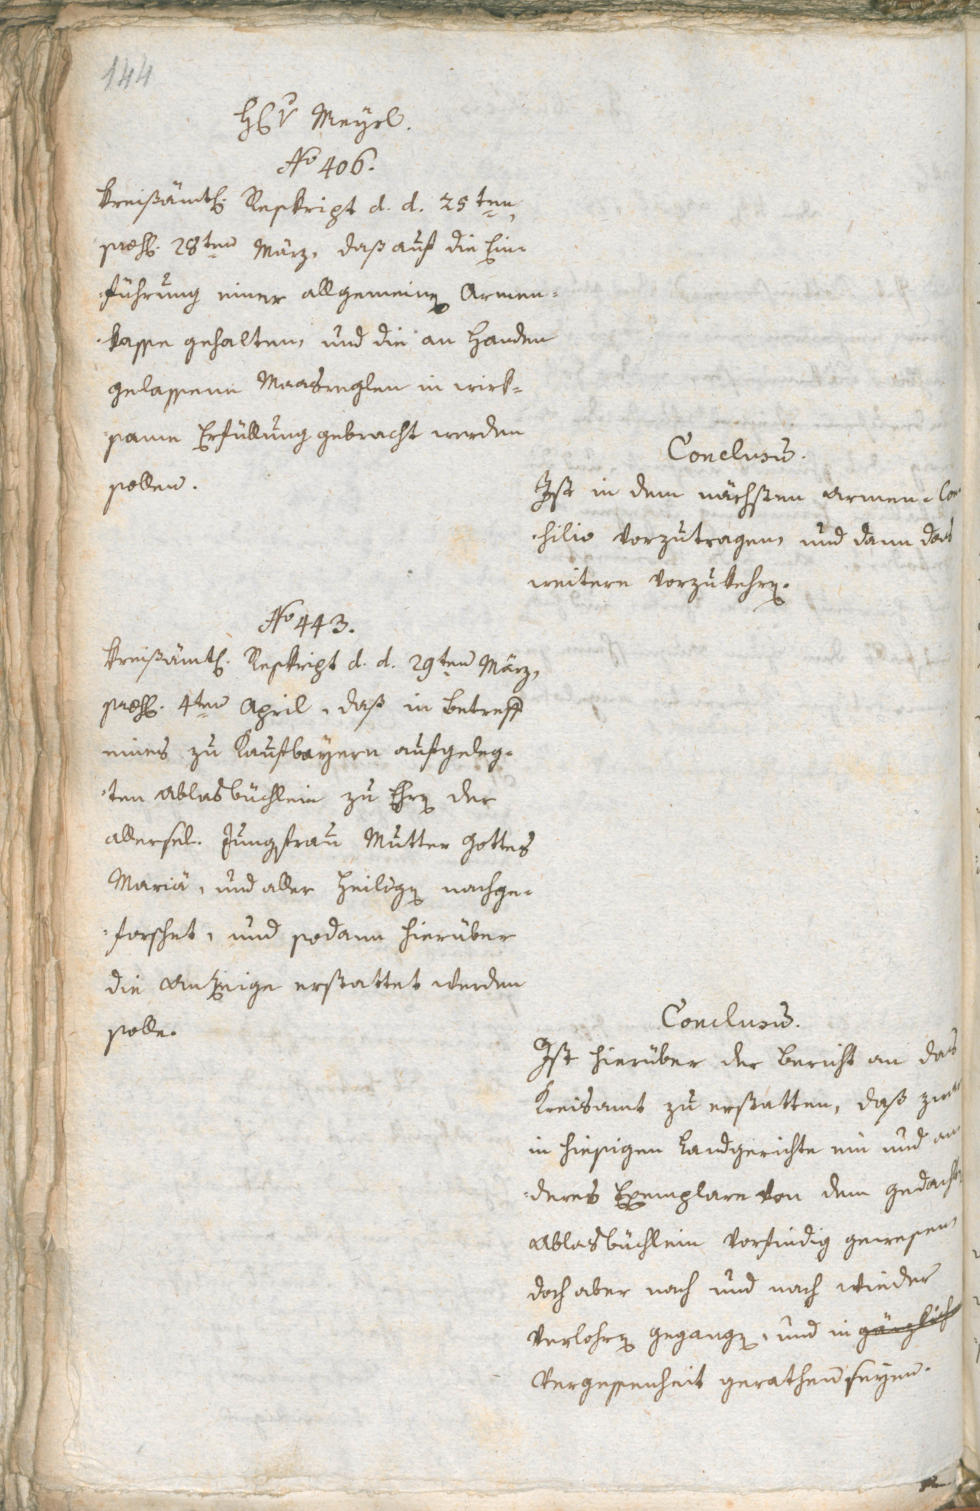 144
H: Meÿrl.
No 406.
Kreißämtl: Reskript d. d. 25ten,
præs: 28ten März, daß auf die Ein-
führung einer allgemeinen Armen=
kasse gehalten, und die an Handen
gelassene Maasreglen in wirk=
same Erfüllung gebracht werden
sollen.
Conclusum.
Ist in dem nächsten Armen=Con
silio vorzutragen, und dann das
weitere vorzukehren.
No 443.
Kreißämtl: Reskript d. d. 29ten März,
præs: 4ten April, daß in Betreff
eines zu Kaufbeÿern aufgeleg=
ten Ablasbüchlein zu Ehren der
allersel. Jungfrau Mutter Gottes
Mariä, und aller Heiligen nachge=
forschet, und sodann hierüber
die Anzeige erstattet werden
solle.
Conclusum.
Ist hierüber der Bericht an das
Kreisamt zu erstatten, daß zwar
in hiesigen Landgerichte ein und an
deres Exemplare von dem gedacht
Ablasbüchlein vorfindig gewesen,
doch aber nach und nach wieder
verlohren gegangen, und in gänzlich
Vergessenheit gerathen seÿen.